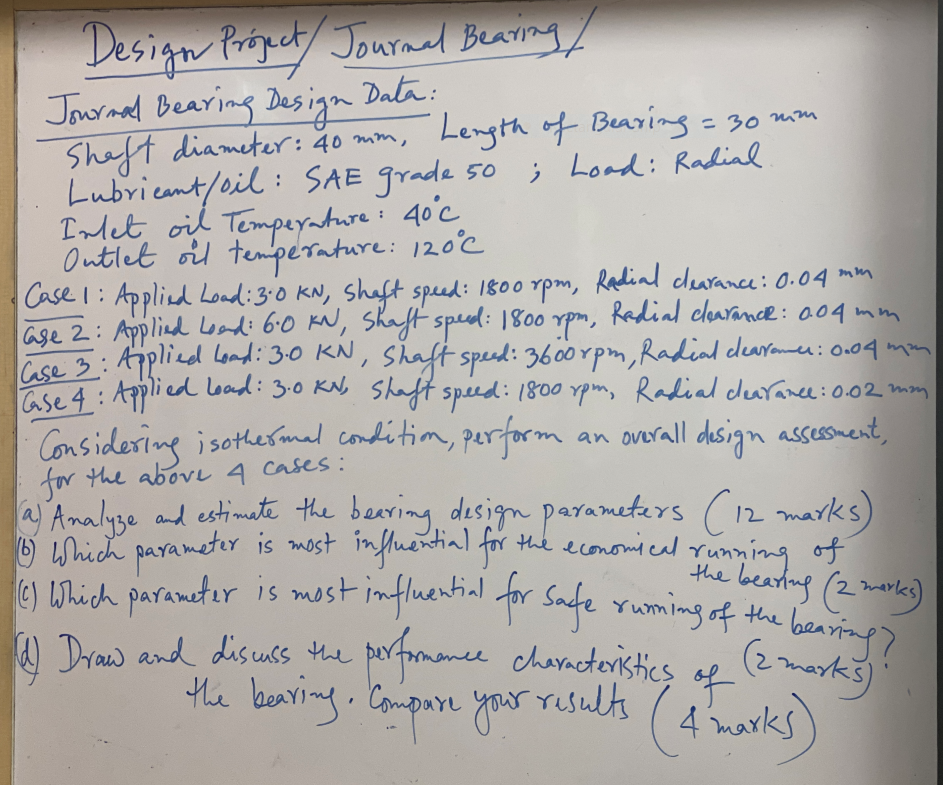 Design Project/ Journal Bearing/
Journal Bearing Design Data:
Shaft diameter: 40 mm, Length of Bearing = 30 mm
Lubricant/oil: SAE grade 50 ; Load: Radial
Inlet oil Temperature: 40°C
Outlet oil temperature: 120°C
Case 1: Applied Load: 3.0 KN, Shaft speed: 1800 rpm, Radial clearance: 0.04 mm
Case 2: Applied Load: 6.0 KN, Shaft speed: 1800 rpm, Radial clearance: 0.04 mm
Case 3: Applied Load: 3.0 KN, Shaft speed: 3600 rpm, Radial clearance: 0.04 mm
Case 4: Applied Load: 3.0 KN, Shaft speed: 1800 rpm, Radial clearance: 0.02 mm
Considering isothermal condition, perform an overall design assessment,
for the above 4 cases:
(a) Analyze and estimate the bearing design parameters (12 marks)
(b) Which parameter is most influential for the economical running of
the bearing (2 marks)
(c) Which parameter is most influential for safe running of the bearing?
(2 marks)
(d) Draw and discuss the performance characteristics of
the bearing. Compare your results (4 marks)